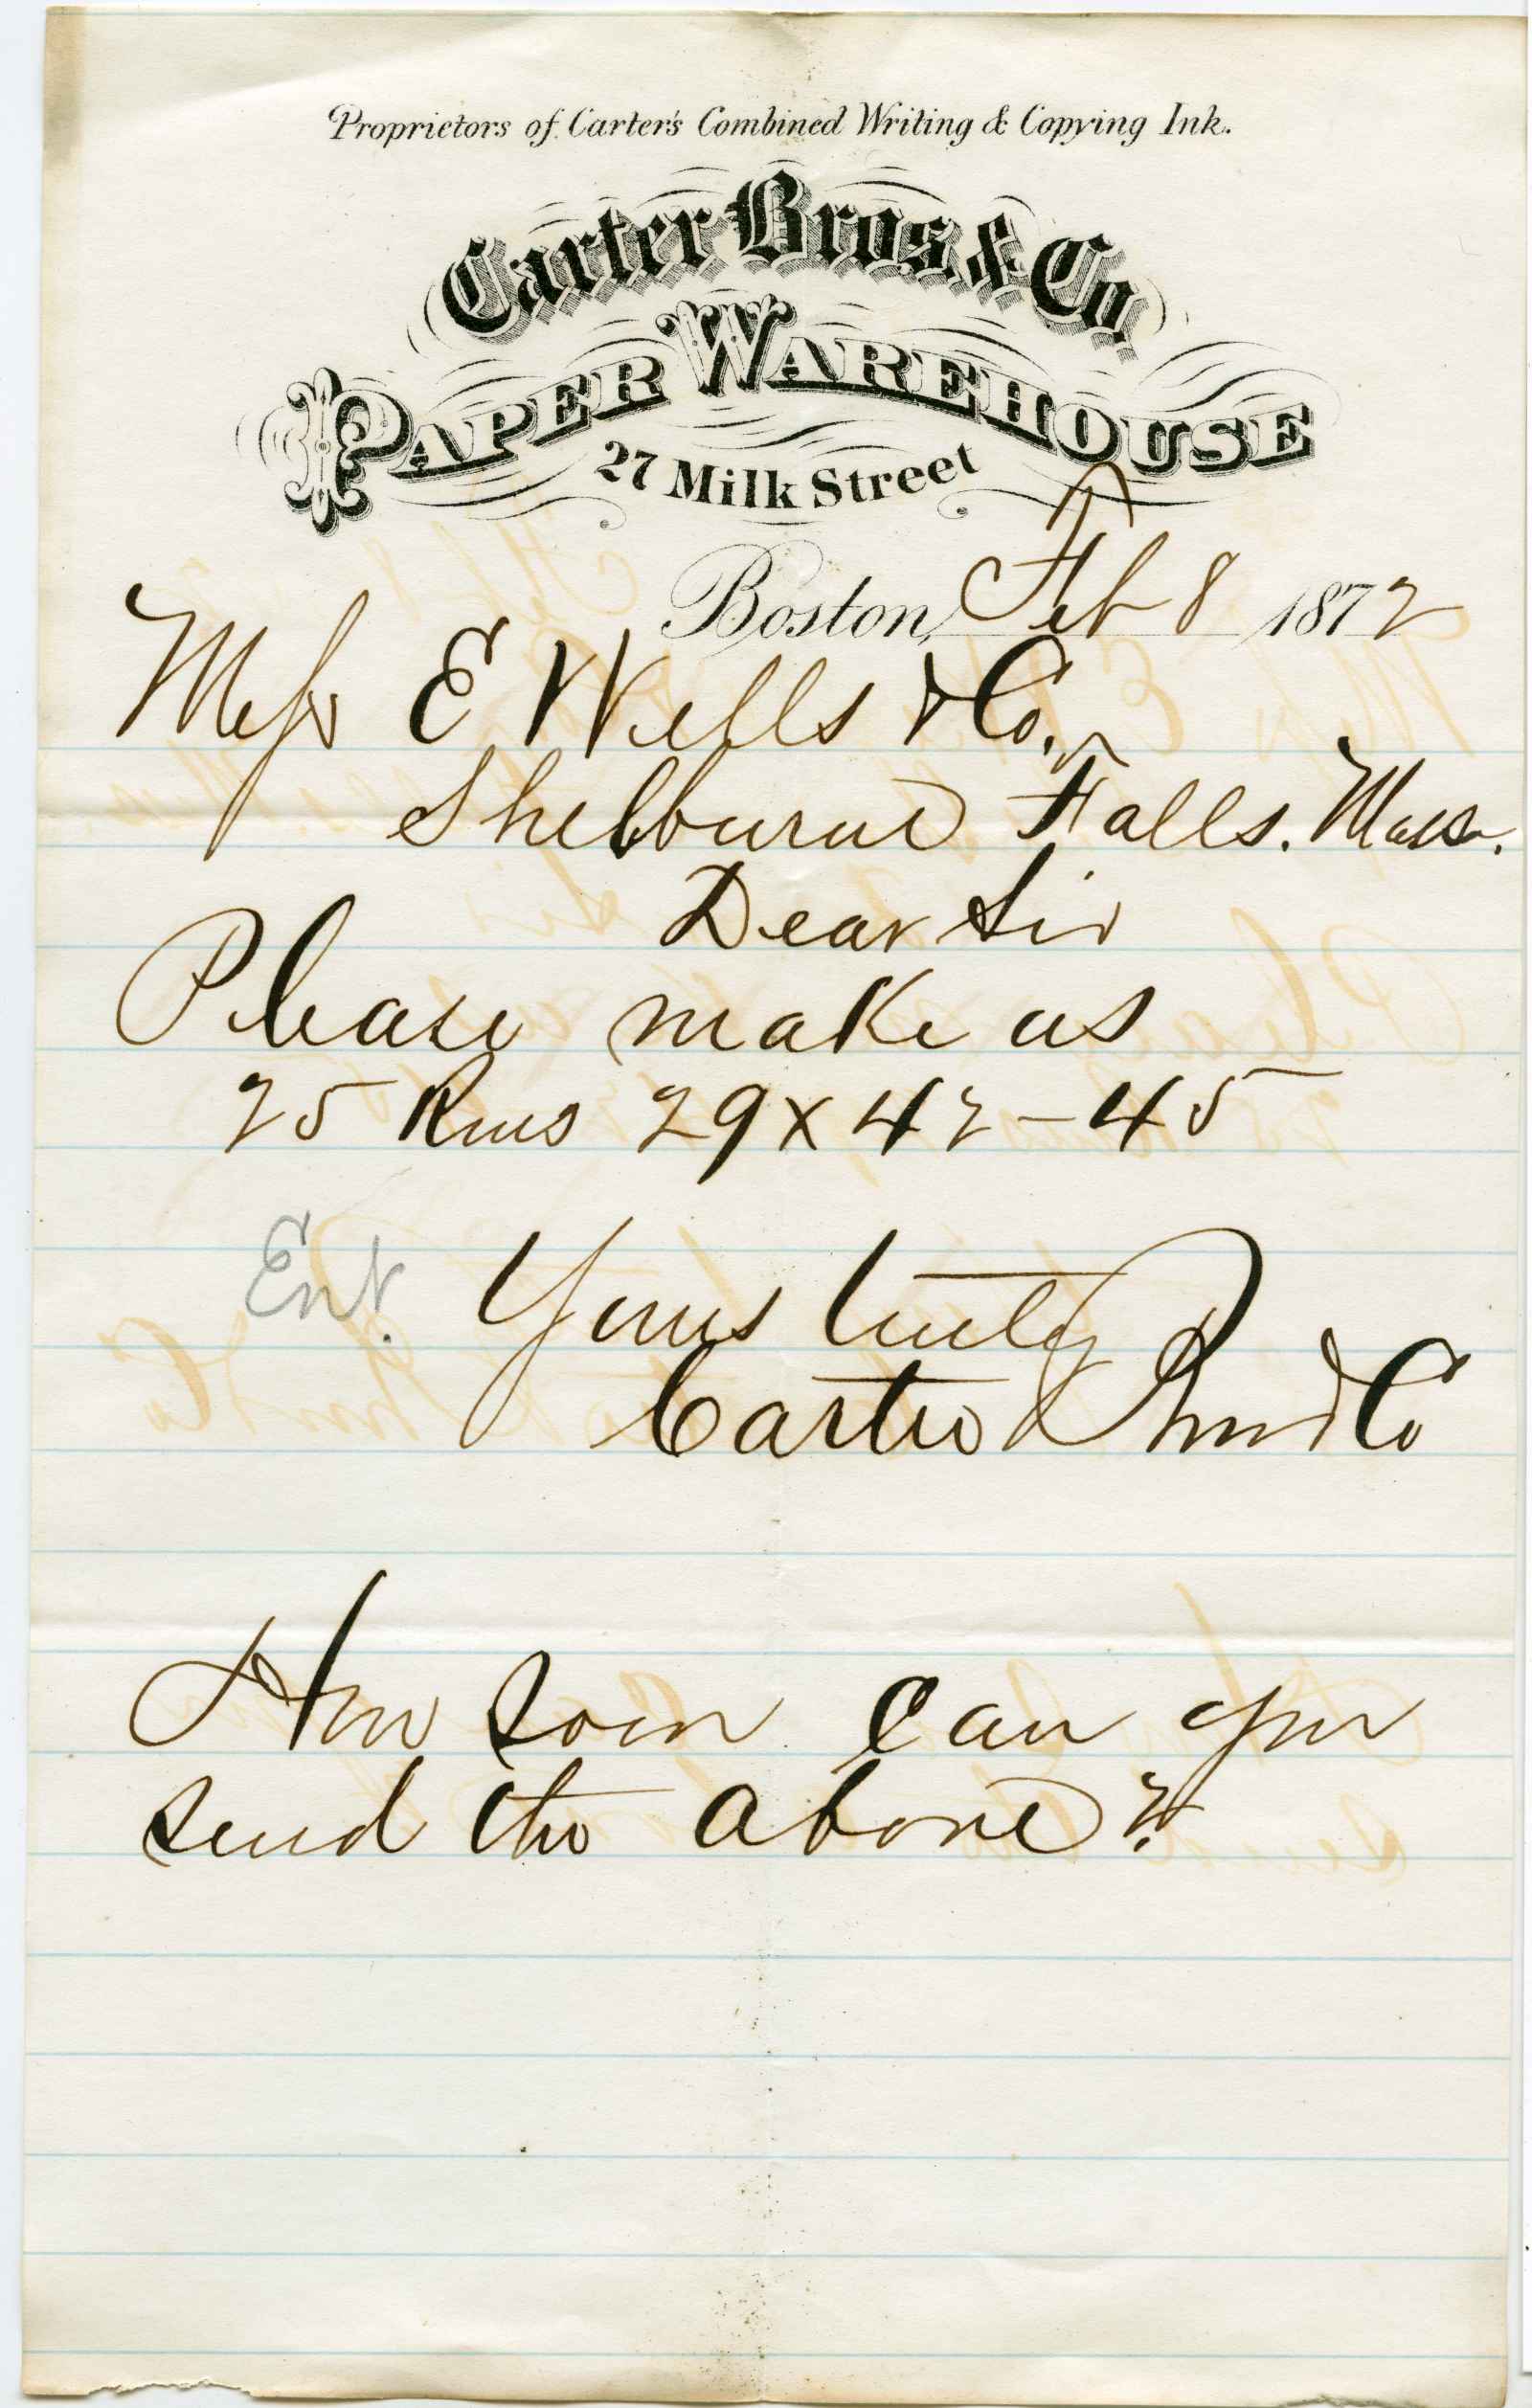 Proprietors of Carter's Combined Writing & Copying Ink.
Carter Bros. & Co.
PAPER WAREHOUSE
27 Milk Street
Boston, Feb 8 1872
Messrs E Wells & Co.
Shelburne Falls. Mass.
Dear Sir
Please make us
25 Rms 29 x 42 - 45
Ent. Yours truly
Carter Bros & Co
How soon can you
send the above?